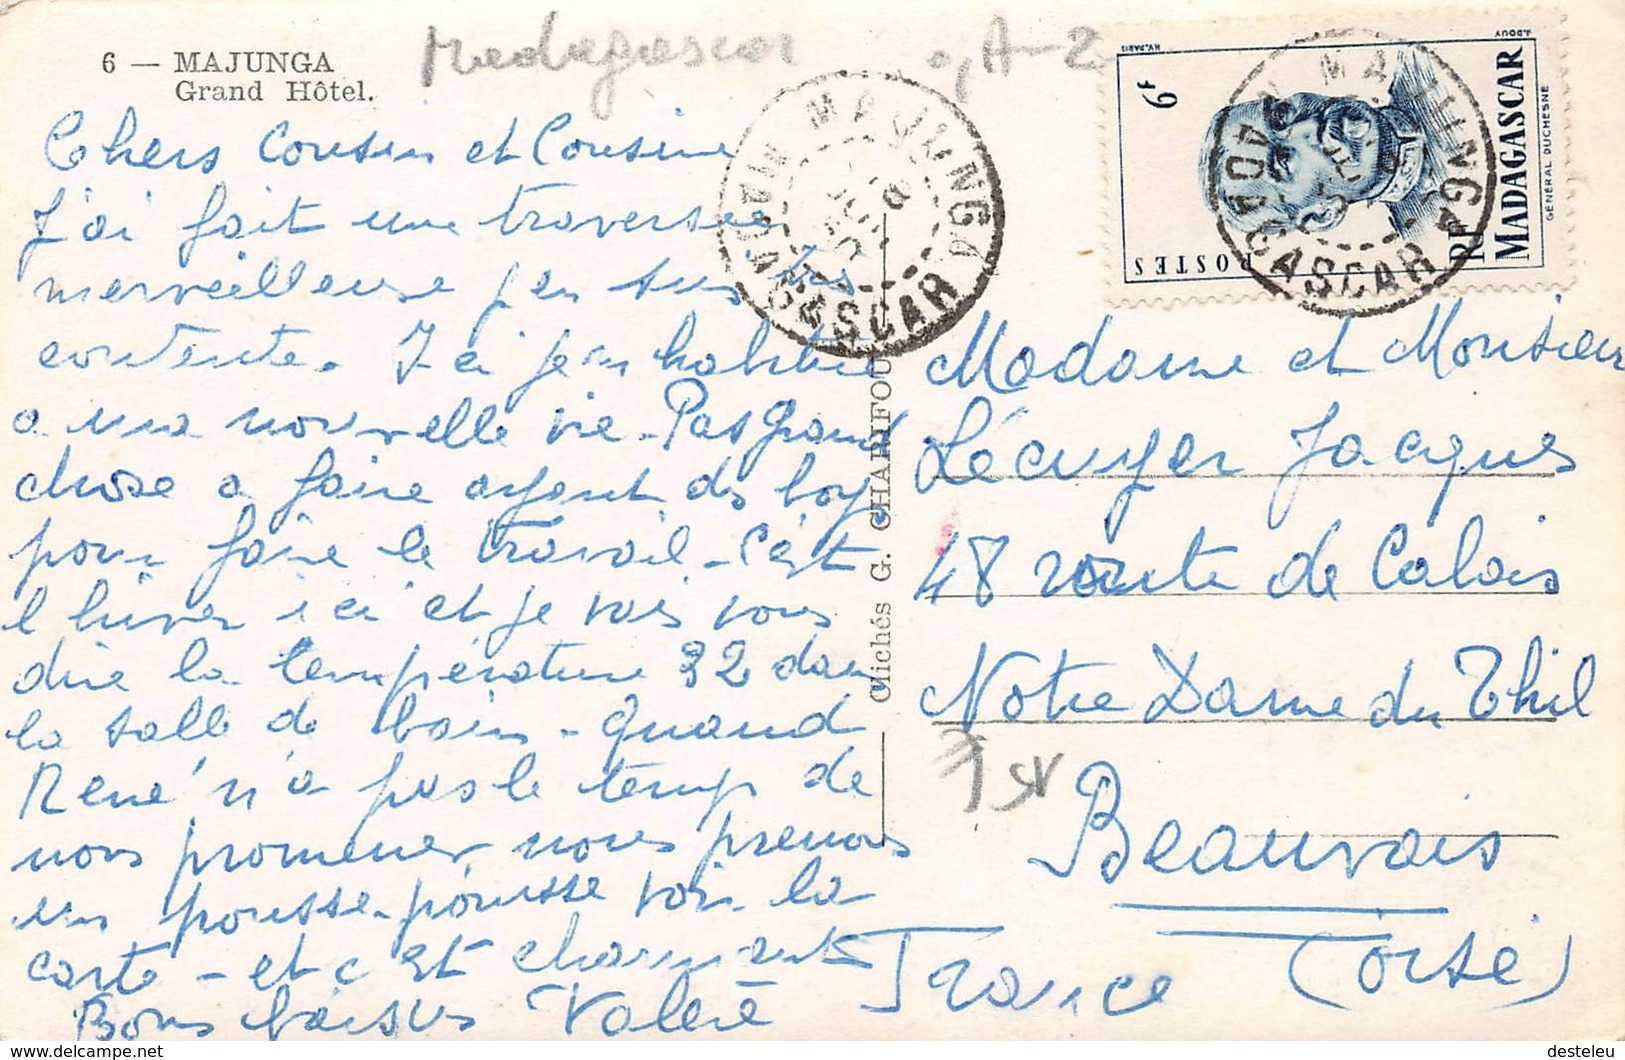 6 — MAJUNGA
Grand Hôtel.
Madagascar
A-2
Chers Cousin et Cousine
J'ai fait une traversée
merveilleuse j'en suis très
contente. Ici je m'habitue
a une nouvelle vie. Pas grand
chose a faire ayant des boys
pour faire le travail - C'est
l'hiver ici et je vais vous
dire la température 32 dans
la salle de bain - Quand
René n'a pas le temps de
nous promener, nous prenons
un pousse-pousse voir la
carte - et c'est charmant
Bons baisers Valérie
Clichés G. CHARIFOU
MAJUNGA
MADAGASCAR
MAJUNGA
MADAGASCAR
9F
POSTES
RF
MADAGASCAR
GÉNÉRAL DUCHESNE
J.DOUY
HV.PARIS
Madame et Monsieur
Lécuyer Jacques
48 route de Calais
Notre Dame du Thil
Beauvais
(Oise)
France
desteleu
delcampe.net